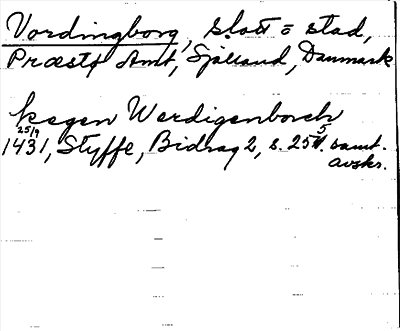 Vordingborg, slott o stad,
Præstø Amt, Sjælland, Danmark
kegen Werdigenborch
25/9
1431, Styffe, Bidrag 2, s. 255. samt.
avskr.